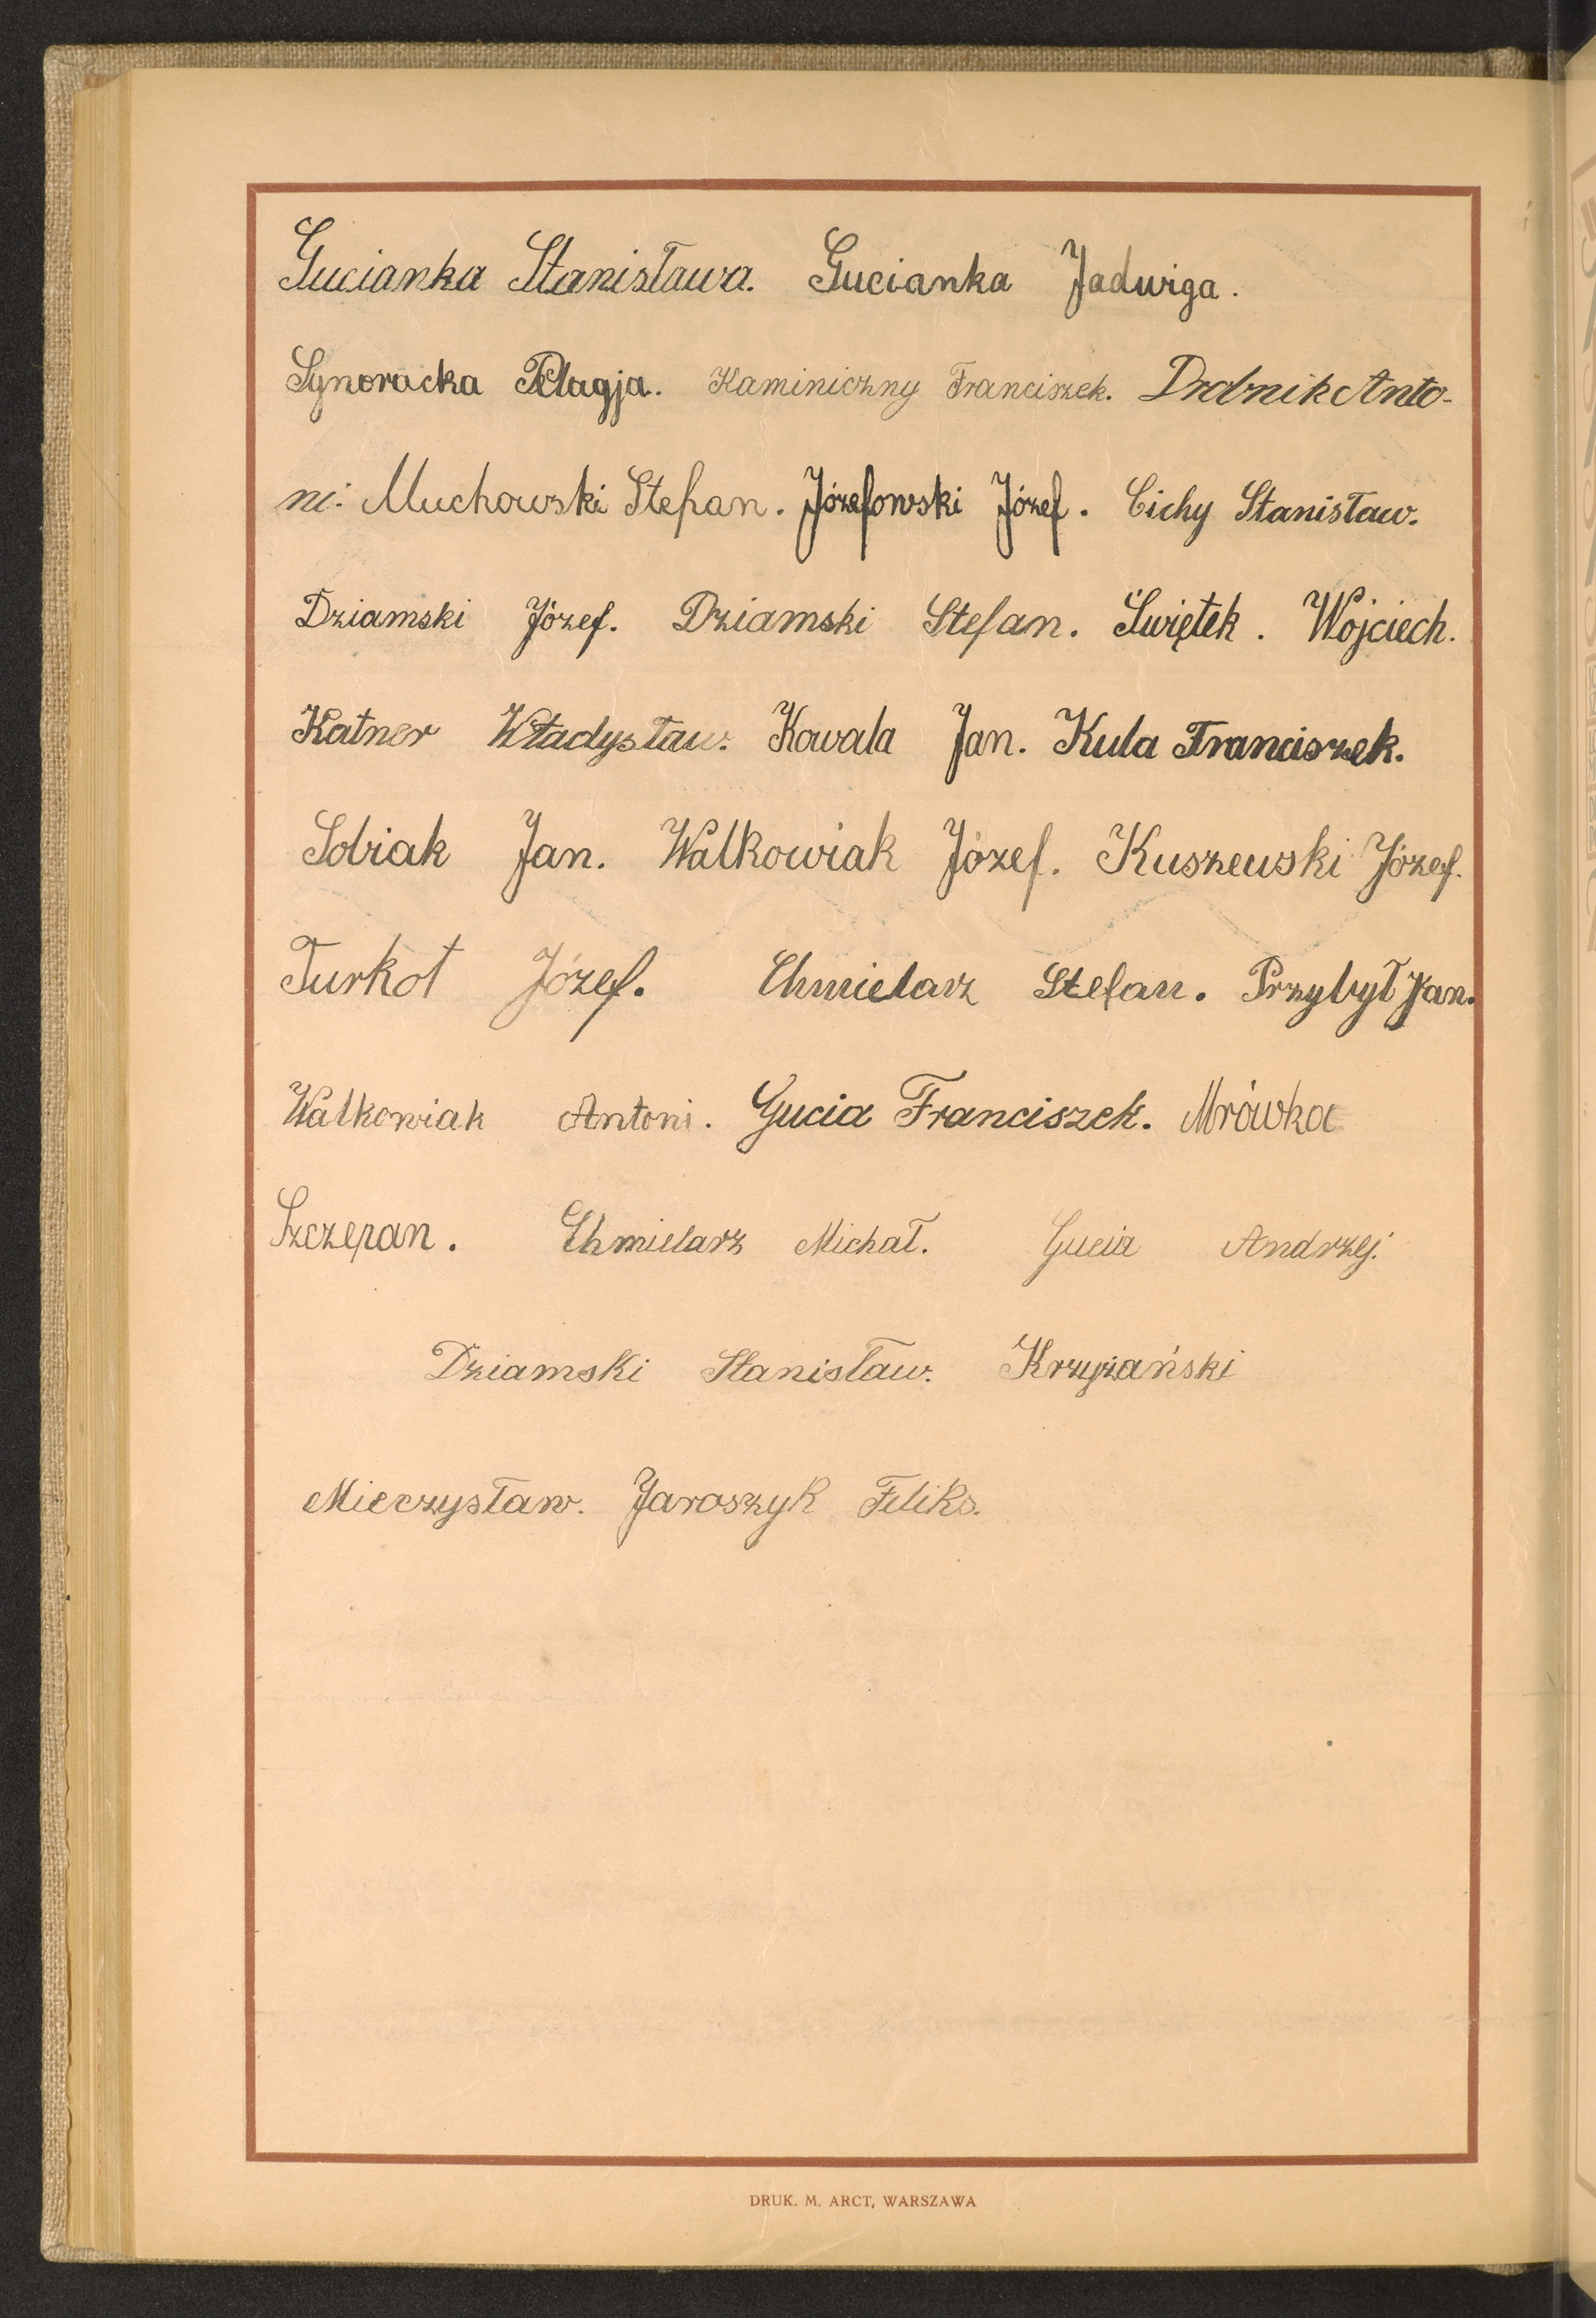 Gucianka Stanisława. Gucianka Jadwiga.
Synoracka Pelagja. Kaminiczny Franciszek. Drobnik Anto-
ni. Muchowski Stefan. Józefowski Józef. Cichy Stanisław.
Dziamski Józef. Dziamski Stefan. Świętek. Wojciech.
Katner Władysław. Kowala Jan. Kula Franciszek.
Sobiak Jan. Walkowiak Józef. Kuszewski Józef.
Turkot Józef. Chmielarz Stefan. Przybył Jan.
Walkowiak Antoni. Gucia Franciszek. Mrówka
Szczepan. Chmielarz Michał. Gucia Andrzej.
Dziamski Stanisław. Krzyżański
Mieczysław. Jaroszyk Feliks.
DRUK. M. ARCT, WARSZAWA